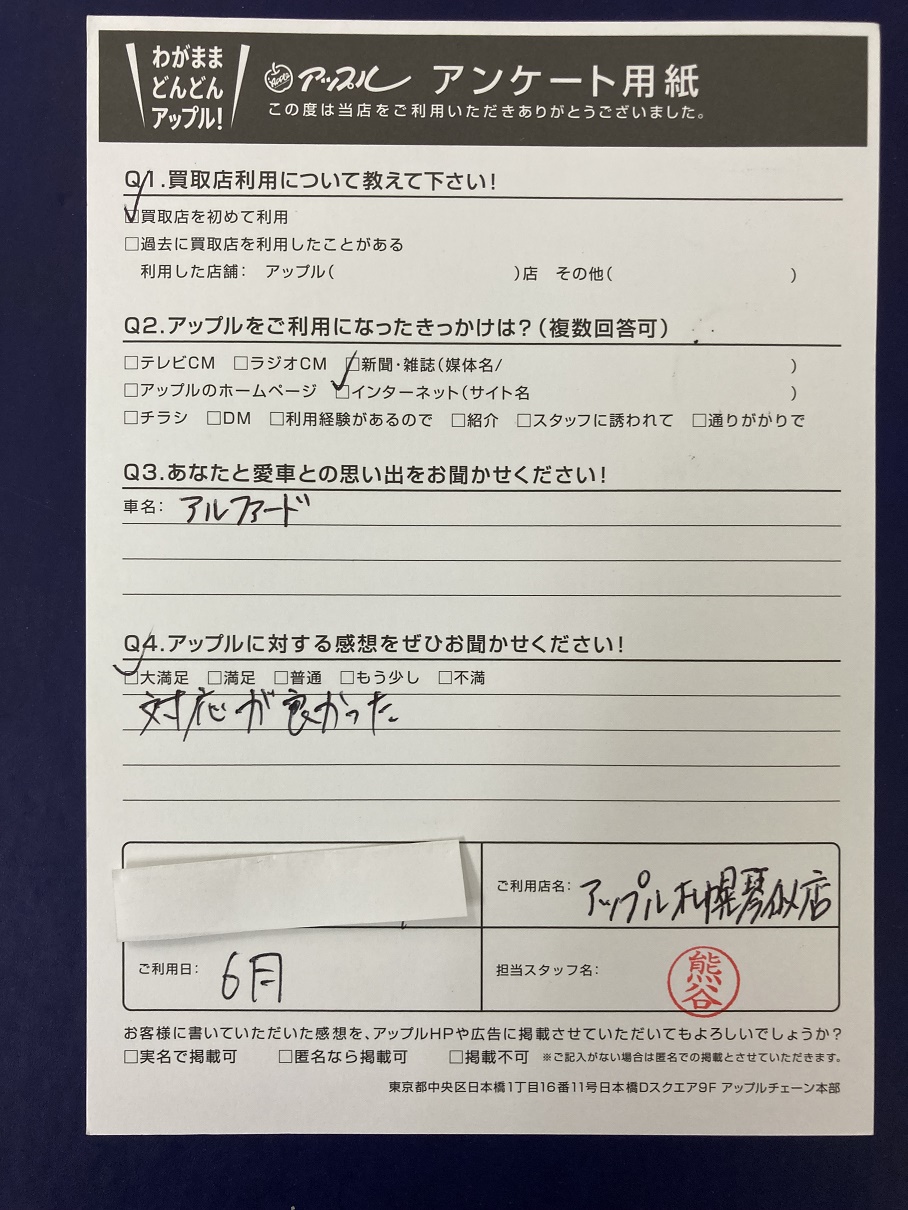 わがまま
どんどん
アップル!
Apple アップル アンケート用紙
この度は当店をご利用いただきありがとうございました。
Q1.買取店利用について教えて下さい!
☑買取店を初めて利用
□過去に買取店を利用したことがある
利用した店舗: アップル( )店 その他( )
Q2.アップルをご利用になったきっかけは?(複数回答可)
□テレビCM □ラジオCM □新聞・雑誌(媒体名/ )
□アップルのホームページ ☑インターネット(サイト名 )
□チラシ □DM □利用経験があるので □紹介 □スタッフに誘われて □通りがかりで
Q3.あなたと愛車との思い出をお聞かせください!
車名: アルファード
Q4.アップルに対する感想をぜひお聞かせください!
☑大満足 □満足 □普通 □もう少し □不満
対応が良かった
ご利用店名: アップル札幌琴似店
ご利用日: 6月
担当スタッフ名: 熊谷
お客様に書いていただいた感想を、アップルHPや広告に掲載させていただいてもよろしいでしょうか?
□実名で掲載可 □匿名なら掲載可 □掲載不可 ※ご記入がない場合は匿名での掲載とさせていただきます。
東京都中央区日本橋1丁目16番11号日本橋Dスクエア9F アップルチェーン本部